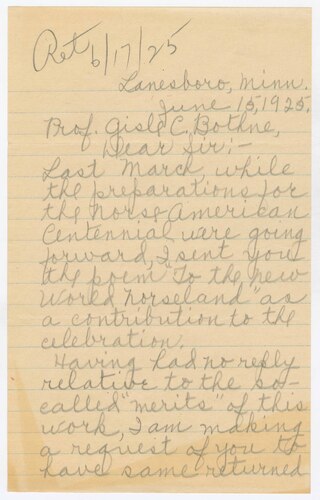 Ret 6/17/25
Lanesboro, Minn.
June 15, 1925.
Prof. Gisle C. Bothne,
Dear Sir:-
Last March, while
the preparations for
the Norse American
Centennial were going
forward, I sent you
the poem "To the new
World Norseland" as
a contribution to the
celebration.
Having had no reply
relative to the so-
called "merits" of this
work, I am making
a request of you to
have same returned